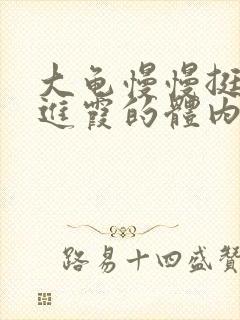 大龟慢慢挺
進霞的體内
路易十四盛贊